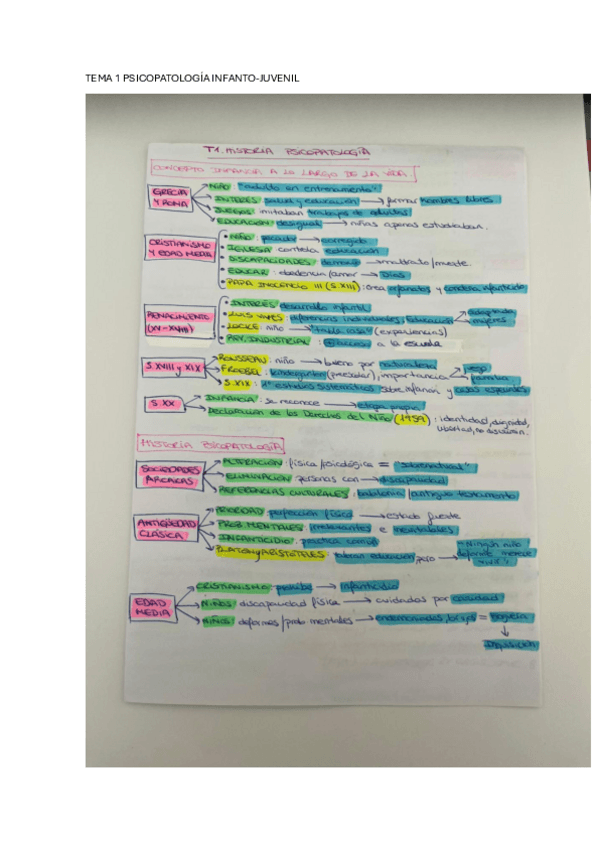 TEMA 1 PSICOPATOLOGÍA INFANTO-JUVENIL
T1. HISTORIA PSICOPATOLOGÍA
CONCEPTO INFANCIA A LO LARGO DE LA VIDA
GRECIA Y ROMA
NIÑO: "adulto en entrenamiento"
INTERÉS: salud y educación → formar hombres libres.
JUEGOS: imitaban trabajos de adultos
EDUCACIÓN: desigual → niñas apenas estudiaban.
CRISTIANISMO Y EDAD MEDIA
• NIÑO: pecador → corregido
• IGLESIA: controla educación
• DISCAPACIDADES: demonio → maltrato/muerte.
• EDUCAR: obediencia/amor → Dios
• PAPA INOCENCIO III (S.XIII): crea orfanatos y condena infanticidio
RENACIMIENTO (XV-XVIII)
• INTERÉS: desarrollo infantil
• LUIS VIVES: diferencias individuales, educación → adaptada → mujeres
• LOCKE: niño → "tabla rasa" (experiencias)
• REV. INDUSTRIAL: acceso a la escuela
S.XVIII y XIX
ROUSSEAU: niño → bueno por naturaleza
FROEBEL: kindergarten (preescolar), importancia → juego → familia
S.XIX: 1º estudios sistemáticos sobre infancia y
S.XX
INFANCIA: se reconoce → etapa propia
Declaración de los Derechos del Niño (1959): identidad, dignidad,
libertad, no discrimin.
HISTORIA PSICOPATOLOGÍA
SOCIEDADES ARCAICAS
ALTERACIÓN física/psicológica = "sobrenatural"
ELIMINACIÓN personas con → discapacidad
REFERENCIAS CULTURALES: babilonia/antiguo testamento
ANTIGÜEDAD CLÁSICA
SOCIEDAD: perfección física → estado fuerte
PROB. MENTALES: e inevitables
INFANTICIDIO: práctica común
PLATÓN y ARISTÓTELES: valoran educación, pero → "Ningún niño
deforme merece
vivir"
EDAD MEDIA
CRISTIANISMO: prohíbe → infanticidio
NIÑOS: discapacidad física → cuidados por caridad
NIÑOS: deformes/prob mentales → endemoniados = brujería
↓
Inquisición